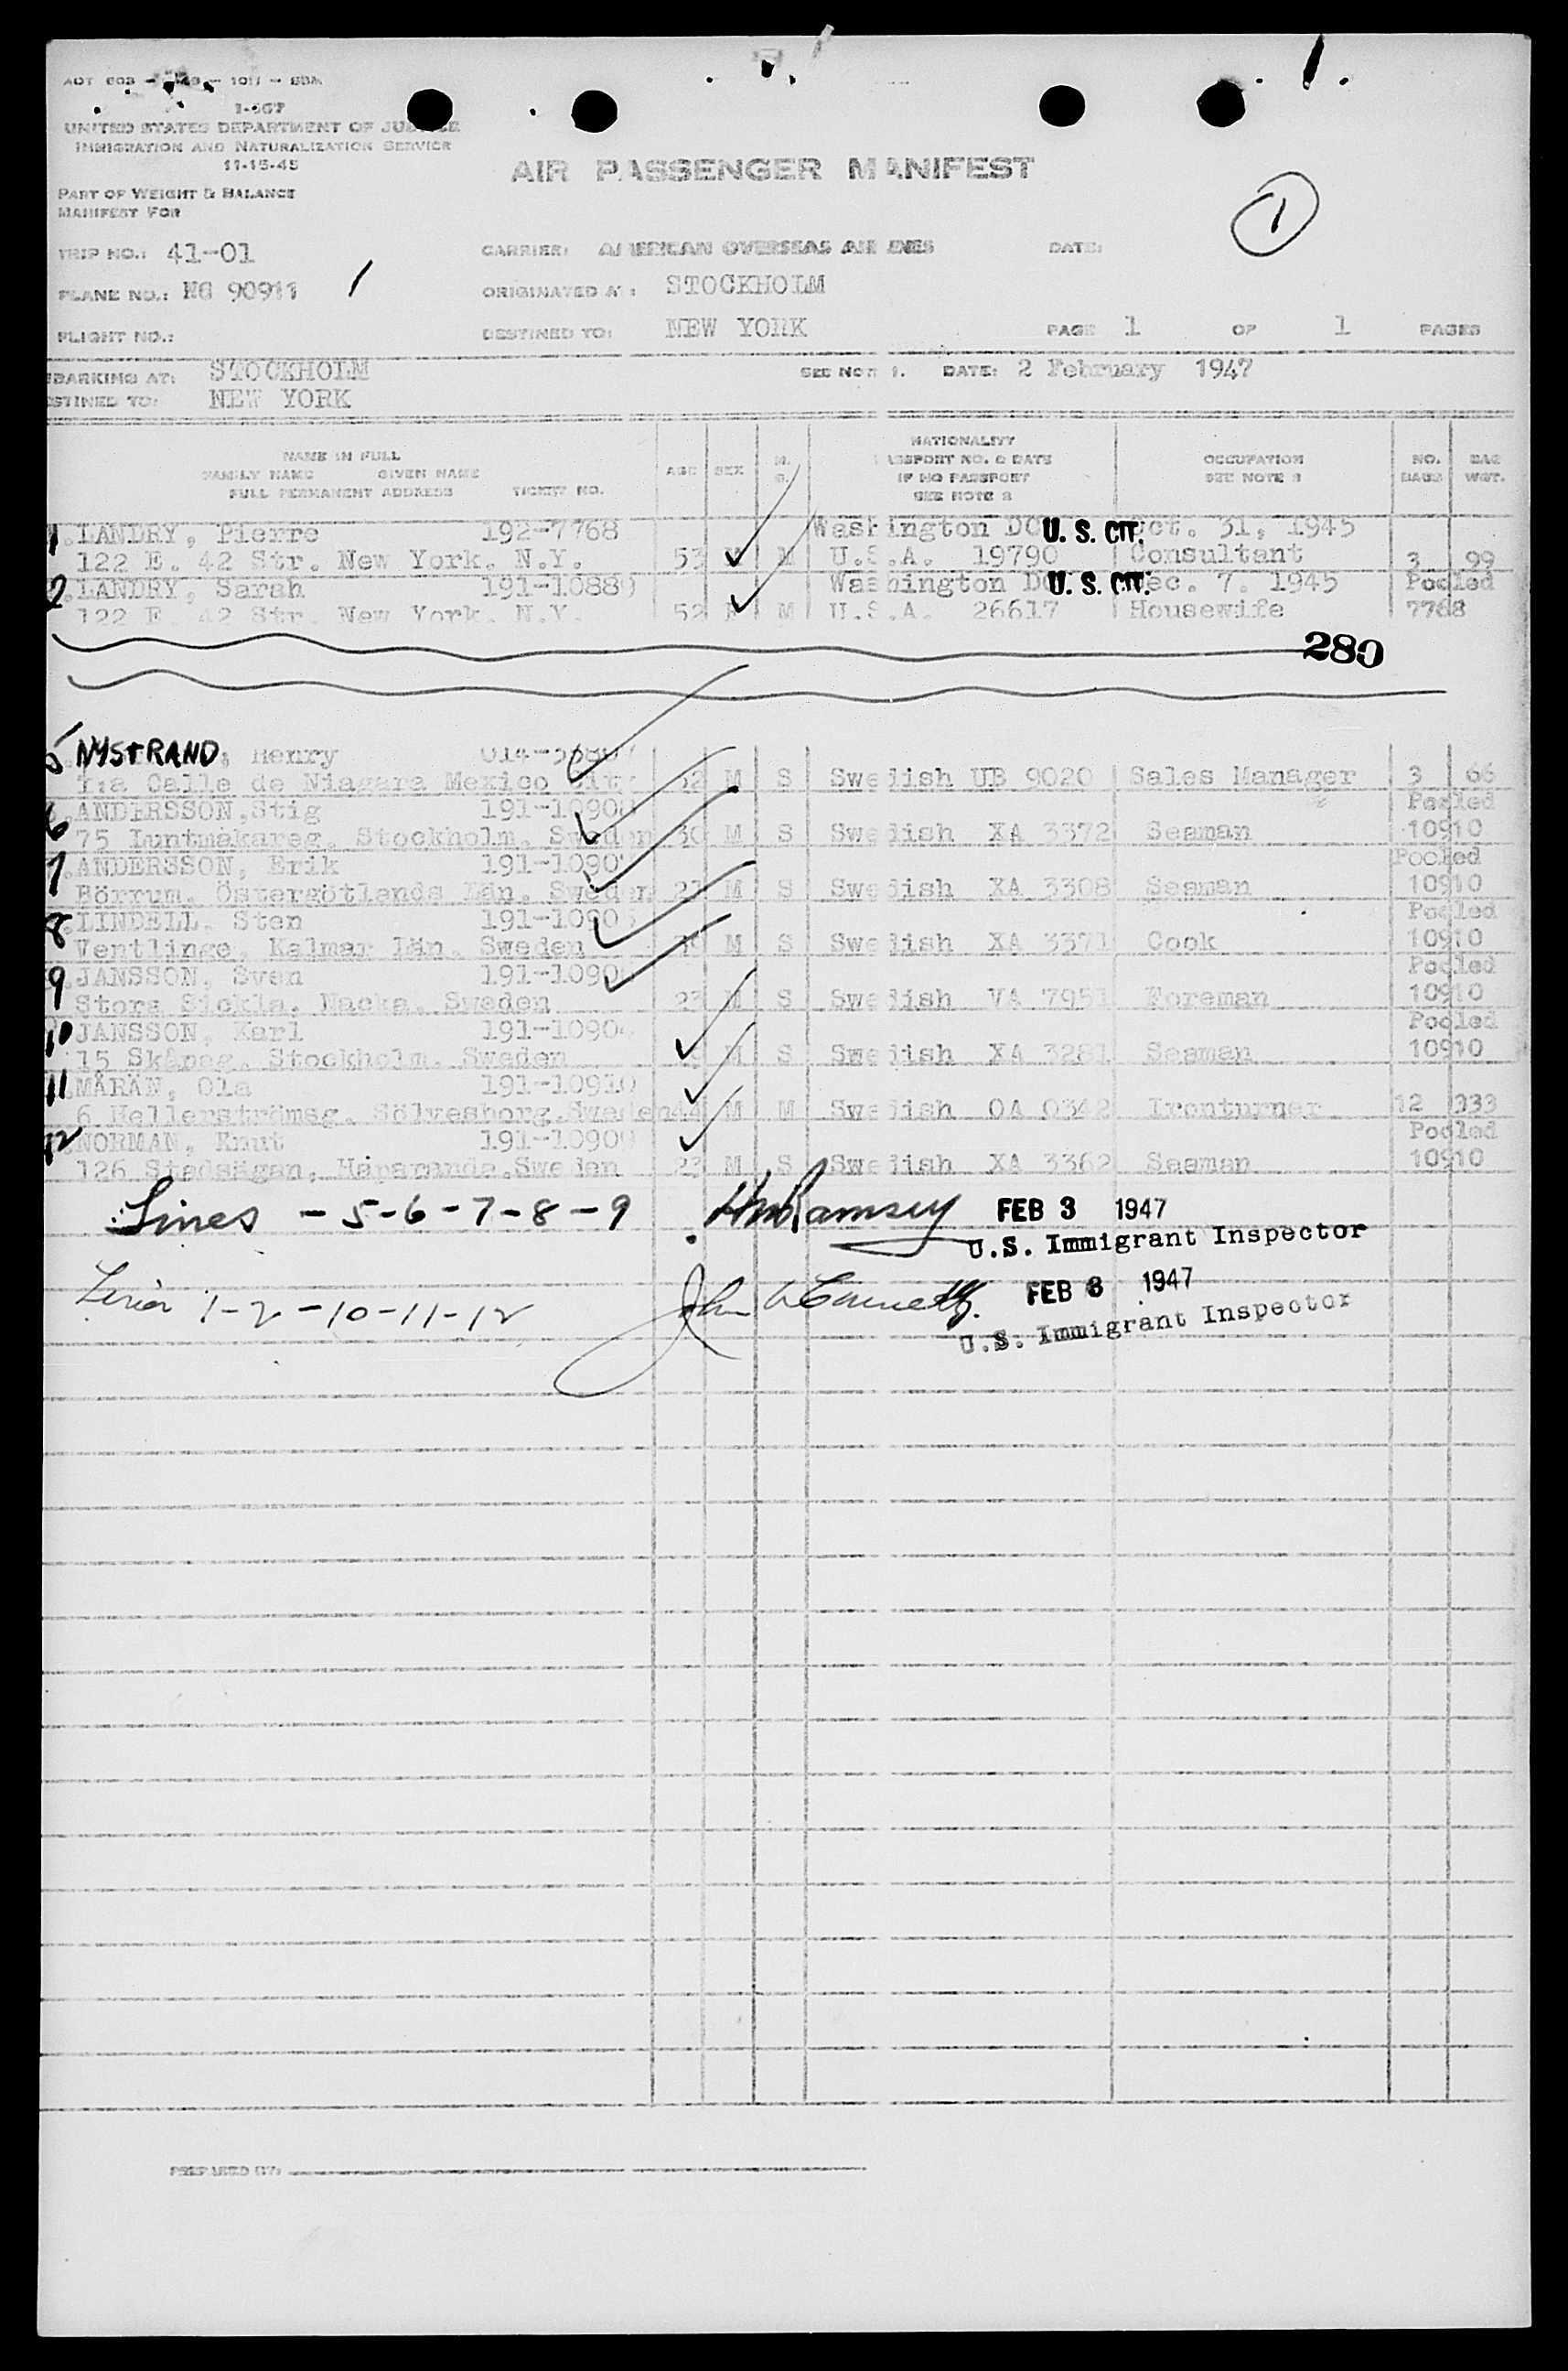 1.
I-467
UNITED STATES DEPARTMENT OF JUSTICE
IMMIGRATION AND NATURALIZATION SERVICE
11-15-45
AIR PASSENGER MANIFEST
PART OF WEIGHT & BALANCE
MANIFEST FOR
1
TRIP NO.: 41-01 CARRIER: AMERICAN OVERSEAS AIRLINES DATE:
PLANE NO.: NC 90911 / ORIGINATED AT: STOCKHOLM
FLIGHT NO.: DESTINED TO: NEW YORK PAGE 1 OF 1 PAGES
EMBARKING AT: STOCKHOLM SEE NOTE 1. DATE: 2 February 1947
DESTINED TO: NEW YORK
NAME IN FULL
FAMILY NAME GIVEN NAME
FULL PERMANENT ADDRESS TICKET NO.
AGE SEX M. S.
NATIONALITY
PASSPORT NO. & DATE
IF NO PASSPORT
SEE NOTE 2
OCCUPATION
SEE NOTE 3
NO. BAGS BAG WGT.
1. LANDRY, Pierre 192-7768 Washington DC U. S. CIT. Oct. 31, 1945
122 E. 42 Str. New York. N.Y. 53 M M U.S.A. 19790 Consultant 3 99
2. LANDRY, Sarah 191-10889 Washington DC U. S. CIT. Dec. 7. 1945 Pooled
122 E 42 Str. New York. N.Y. 52 F M U.S.A. 26617 Housewife 7768
280
5 NYSTRAND, Henry
1:a Calle de Niagara Mexico City 32 M S Swedish UB 9020 Sales Manager 3 66
6. ANDERSSON, Stig 191-10908 Pooled
75 Luntmakareg. Stockholm. Sweden 30 M S Swedish XA 3372 Seaman 10910
7. ANDERSSON, Erik 191-1090 Pooled
Börrum. Östergötlands Län. Sweden M S Swedish XA 3308 Seaman 10910
8. LINDELL. Sten 191-1090 Pooled
Ventlinge. Kalmar län. Sweden M S Swedish XA 3371 Cook 10910
9. JANSSON, Sven 191-1090 Pooled
Stora Sickla. Nacka. Sweden 23 M S Swedish VA 7951 Foreman 10910
10 JANSSON, Karl 191-1090 Pooled
15 Skåneg. Stockholm. Sweden M S Swedish XA 3281 Seaman 10910
11. MÅRÄN, Ola 191-10910
6 Hellerströmsg. Sölvesborg. Sweden 44 M M Swedish OA 0342 Ironturner 12 333
12 NORMAN, Knut 191-10909 Pooled
126 Stadsägan, Haparanda. Sweden 23 M S Swedish XA 3362 Seaman 10910
Lines - 5-6-7-8-9 HmRamsey FEB 3 1947
U.S. Immigrant Inspector
1-2-10-11-12 John FEB 3 1947
U.S. Immigrant Inspector
PREPARED BY: